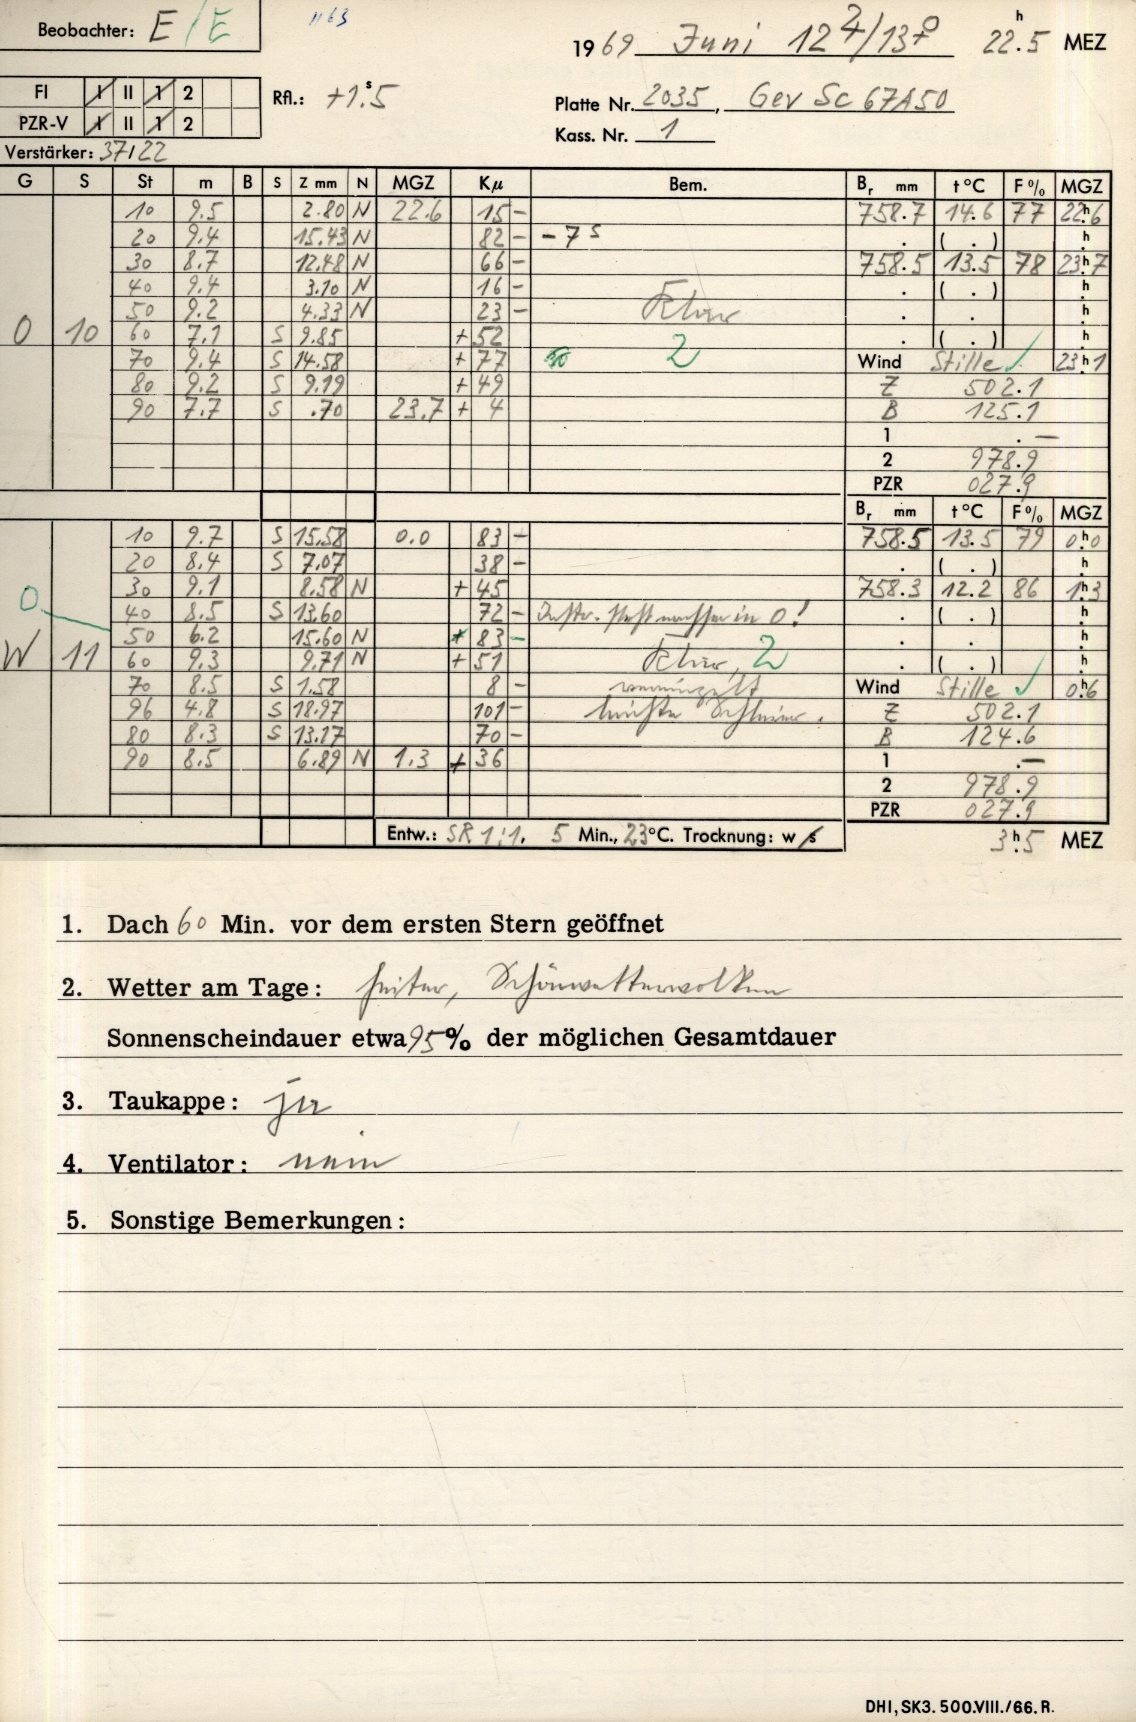 Beobachter: E / E
1163
1969 Juni 12 ♃/13 ♀ 22.ʰ5 MEZ
FI I II 1 2
PZR-V I II 1 2
Rfl.: +1.ˢ5
Platte Nr. 2035, Gev Sc 67A50
Kass. Nr. 1
Verstärker: 37/22
G S St m B S Z mm N MGZ Kμ Bem. Br mm t°C F% MGZ
10 9.5 2.80 N 22.6 15 - 758.7 14.6 77 22ʰ.6
20 9.4 15.43 N 82 - - 7ˢ . ( . ) ʰ.
30 8.7 12.48 N 66 - 758.5 13.5 78 23ʰ.7
40 9.4 3.10 N 16 - . ( . ) ʰ.
50 9.2 4.33 N 23 - Klar . . ʰ.
O 10 60 7.1 S 9.85 + 52 . ( . ) ʰ.
70 9.4 S 14.58 + 77 2 Wind Stille ✓ 23ʰ.1
80 9.2 S 9.19 + 49 Z 502.1
90 7.7 S .70 23.7 + 4 B 125.1
1 . —
2 978.9
PZR 027.9
Br mm t°C F% MGZ
10 9.7 S 15.58 0.0 83 - 758.5 13.5 79 0ʰ.0
20 8.4 S 7.07 38 - . ( . ) ʰ.
30 9.1 8.58 N + 45 758.3 12.2 86 1ʰ.3
O 40 8.5 S 13.60 72 - Instr. steht noch in O! . ( . ) ʰ.
50 6.2 15.60 N + 83 - . . ʰ.
W 11 60 9.3 9.71 N + 51 Klar, 2 . ( . ) ʰ.
70 8.5 S 1.58 8 - vereinzelt Wind Stille ✓ 0ʰ.6
96 4.8 S 18.97 101 - leichte Schleier. Z 502.1
80 8.3 S 13.17 70 - B 124.6
90 8.5 6.89 N 1.3 + 36 1 .—
2 978.9
PZR 027.9
Entw.: SR 1:1. 5 Min., 23°C. Trocknung: w/s
3ʰ.5 MEZ
1. Dach 60 Min. vor dem ersten Stern geöffnet
2. Wetter am Tage: heiter, Schönwetterwolken
Sonnenscheindauer etwa 95% der möglichen Gesamtdauer
3. Taukappe: ja
4. Ventilator: nein
5. Sonstige Bemerkungen:
DHI, SK3. 500.VIII./66. R.